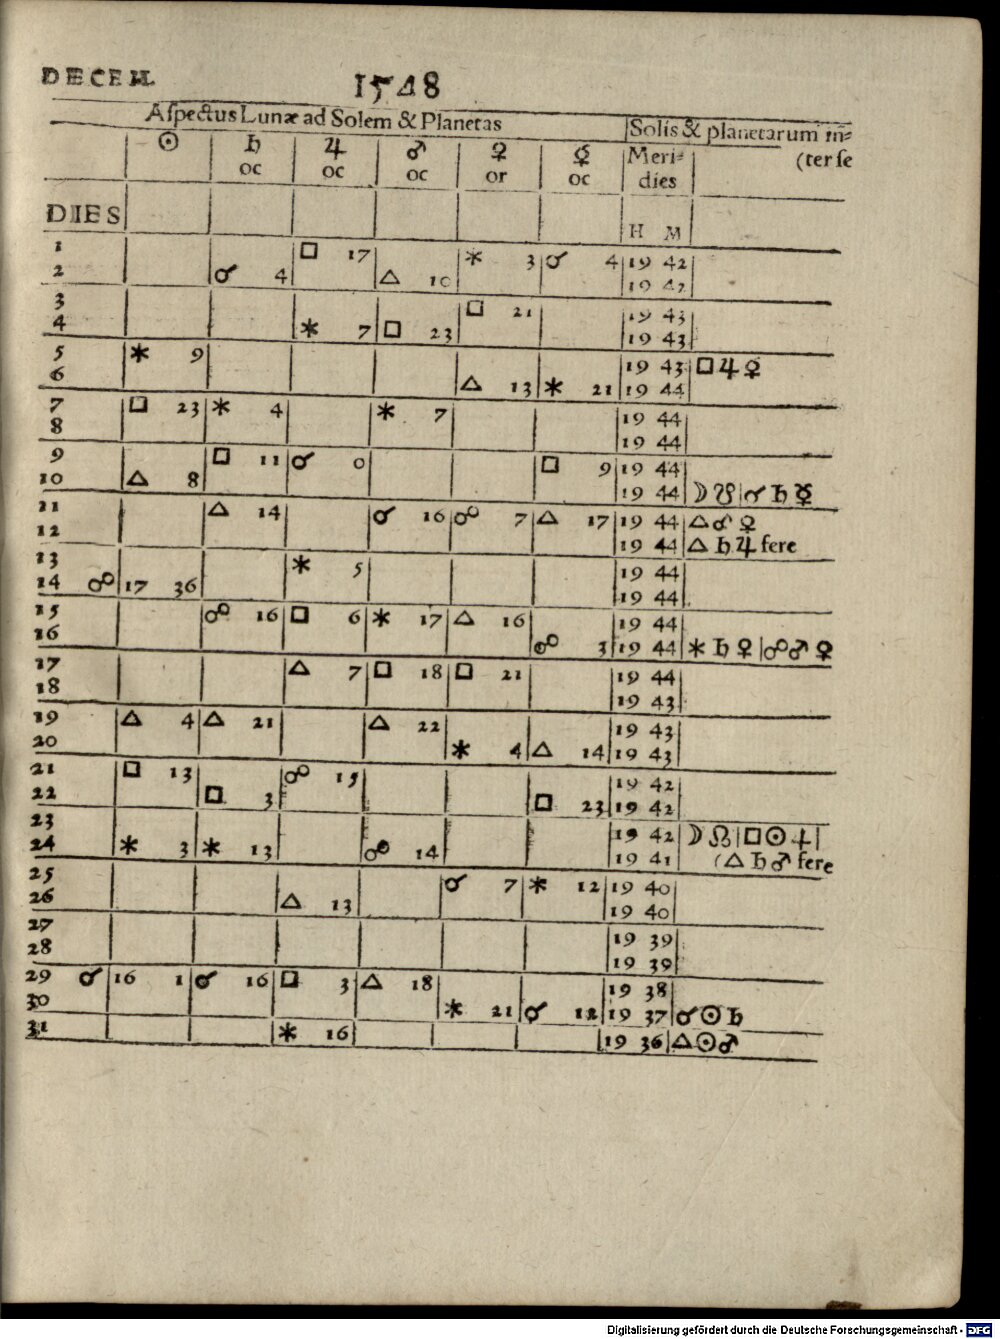 DECEM. 1548
Aſpectus Lunæ ad Solem & Planetas Solis & planetarum in⸗
☉ ♄ ♃ ♂ ♀ ☿ Meri⸗ (ter ſe
oc oc oc or oc dies
DIES H M
1 □ 17 ⚹ 3 ☌ 4 19 42
2 ☌ 4 △ 10 19 42
3 □ 21 19 43
4 ⚹ 7 □ 23 19 43
5 ⚹ 9 19 43 □ ♃ ♀
6 △ 13 ⚹ 21 19 44
7 □ 23 ⚹ 4 ⚹ 7 19 44
8 19 44
9 □ 11 ☌ 0 □ 9 19 44
10 △ 8 19 44 ☽ ☋ | ☌ ♄ ☿
11 △ 14 ☌ 16 ☍ 7 △ 17 19 44 △ ♂ ♀
12 19 44 △ ♄ ♃ fere
13 ⚹ 5 19 44
14 ☍ 17 36 19 44
15 ☍ 16 □ 6 ⚹ 17 △ 16 19 44
16 ☍ 3 19 44 ⚹ ♄ ♀ | ☍ ♂ ♀
17 △ 7 □ 18 □ 21 19 44
18 19 43
19 △ 4 △ 21 △ 22 19 43
20 ⚹ 4 △ 14 19 43
21 □ 13 ☍ 15 19 42
22 □ 3 □ 23 19 42
23 19 42 ☽ ☊ | □ ☉ ♃ |
24 ⚹ 3 ⚹ 13 ☍ 14 19 41 (△ ♄ ♂ fere
25 ☌ 7 ⚹ 12 19 40
26 △ 13 19 40
27 19 39
28 19 39
29 ☌ 16 1 ☌ 16 □ 3 △ 18 19 38
30 ⚹ 21 ☌ 12 19 37 ☌ ☉ ♄
31 ⚹ 16 19 36 △ ☉ ♂
Digitalisierung gefördert durch die Deutsche Forschungsgemeinschaft - DFG